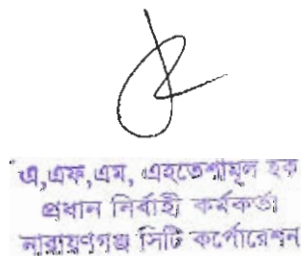 এ,এফ,এম, এহতেশামূল হক
প্রধান নির্বাহী কর্মকর্তা
নারায়ণগঞ্জ সিটি কর্পোরেশন